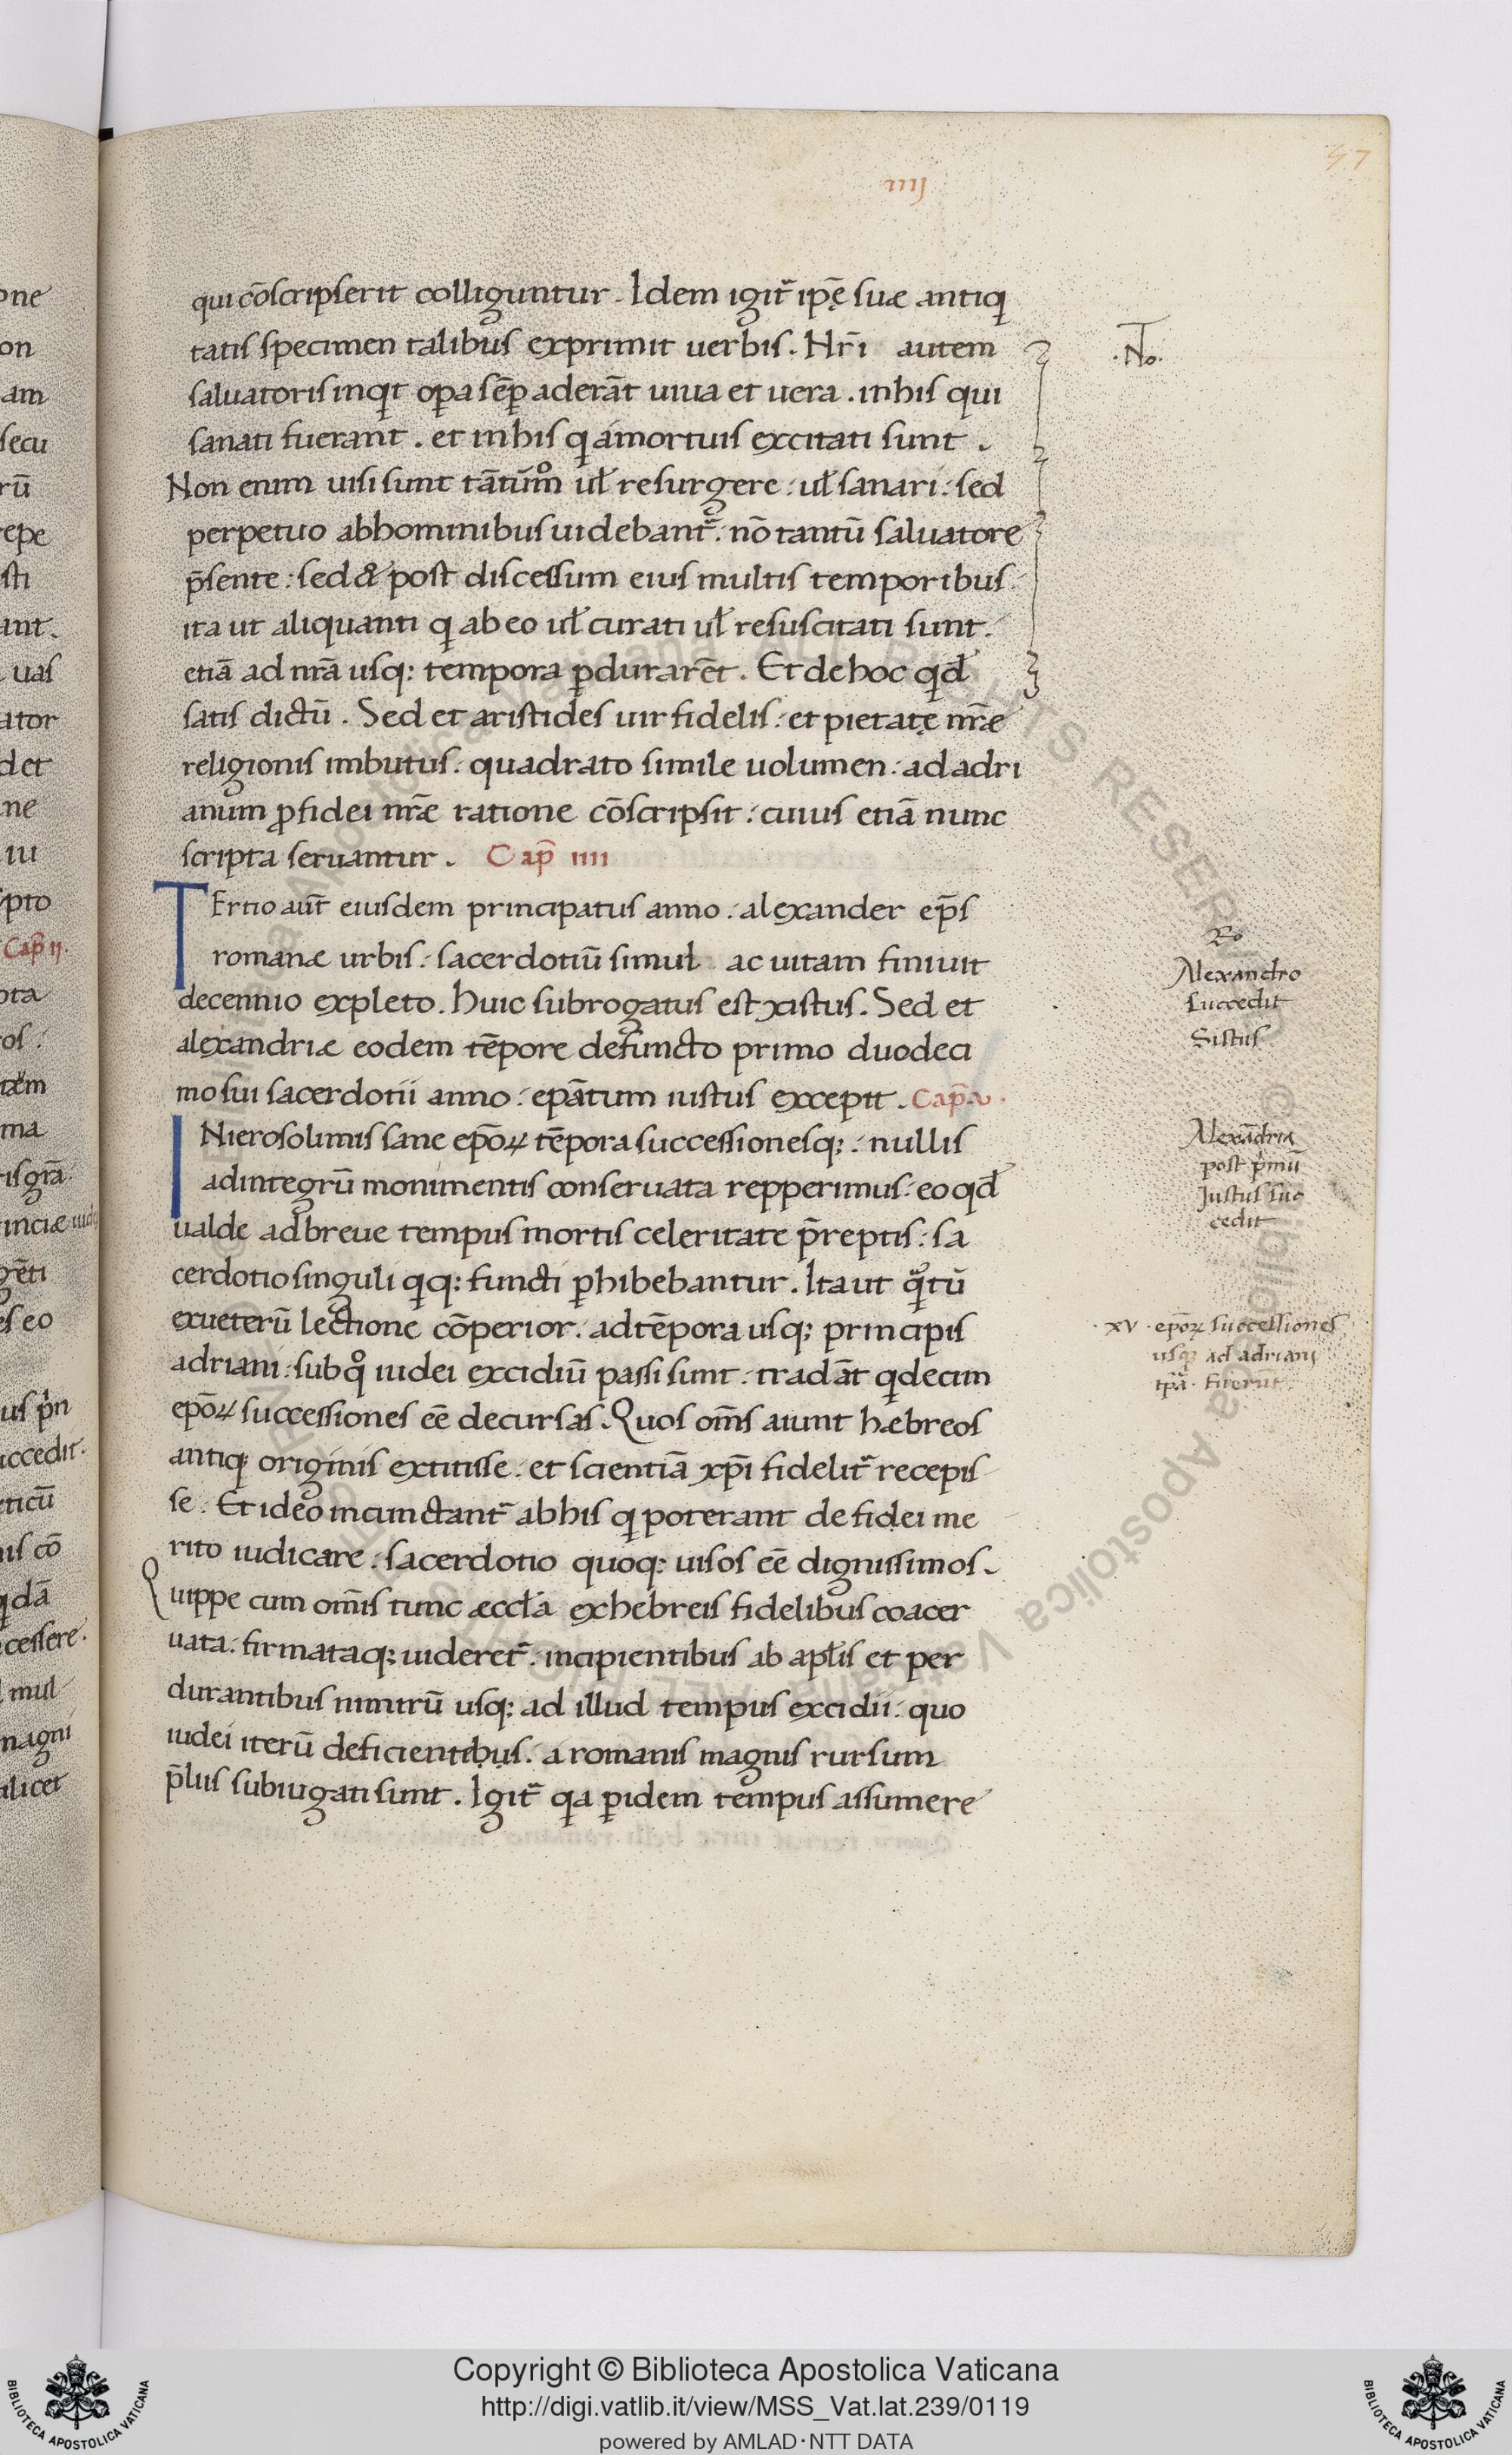 57
iiij
qui cōscripserit colliguntur. Idem igit᷑ ip̄ę suæ antiq
tatis specimen talibus exprimit uerbis. Nr̄i autem
saluatoris inqt oꝑa sēꝑ aderāt uiua et uera. inhis qui
sanati fuerant. et inhis q amortuis excitati sunt.
Non enim uisi sunt tātūmͦ ul̄ resurgere: ul̄ sanari: sed
perpetuo abhominibus uidebant᷑. nō tantū saluatore
p̄sente: sed & post discessum eius multis temporibus.
ita ut aliquanti q ab eo ul̄ curati ul̄ resuscitati sunt.
etiā ad nr̄ā usq; tempora ꝑdurarēt. Et de hoc qd̄
satis dictū. Sed et aristides uir fidelis: et pietatę nr̄æ
religionis imbutus: quadrato simile uolumen: ad adri
anum ꝓ fidei nr̄æ ratione cōscripsit: cuius etiā nunc
scripta seruantur. Cap̄ iiii
TErtio aut̄ eiusdem principatus anno: alexander ep̄s
romanæ urbis: sacerdotiū simul ac uitam finiuit
decennio expleto. huic subrogatus est xistus. Sed et
alexandriæ eodem tēpore defuncto primo duodeci
mo sui sacerdotii anno: ep̄atum iustus excepit. Cap̄. v.
INierosolimis sane ep̄oꝝ tēpora successionesq;: nullis
adintegrū monimentis conseruata repperimus: eo qd̄
ualde ad breue tempus mortis celeritate p̄reptis: sa
cerdotio singuli qq; functi ꝑhibebantur. Ita ut qͣtū
exueterū lectione cōperior. adtēpora usq; principis
adriani: sub qͦ iudei excidiū passi sunt: tradāt qdecim
ep̄oꝝ successiones eē decursas. Quos om̄s aiunt hæbreos
antiq originis extitisse: et scientiā xp̄i fidelit᷑ recepis
se. Et ideo incunctant᷑ abhis q poterant de fidei me
rito iudicare: sacerdotio quoq; uisos eē dignissimos.
Quippe cum om̄is tunc æccl̄a exhebreis fidelibus coacer
uata: firmataq; uideret᷑: incipientibus ab apl̄is et per
durantibus nimirū usq; ad illud tempus excidii: quo
iudei iterū deficientibus: a romanis magnis rursum
p̄liis subiugati sunt. Igit᷑ qa ꝑidem tempus assumere
.No.
Ro
Alexandro
succedit
Sistus
Alexādria
post p̄mū
Justus suc
cedit
.xv. ep̄oꝝ successiones
usq; ad adriani
tp̄a. fuerūt.
Copyright © Biblioteca Apostolica Vaticana
http://digi.vatlib.it/view/MSS_Vat.lat.239/0119
powered by AMLAD·NTT DATA
BIBLIOTECA APOSTOLICA VATICANA
BIBLIOTECA APOSTOLICA VATICANA